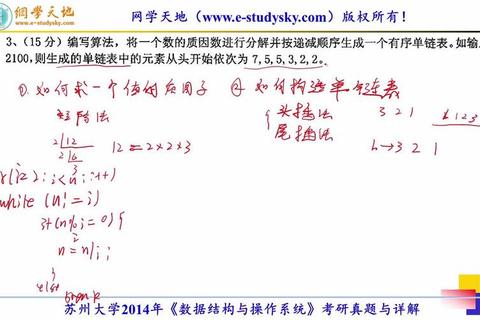 網学天地
www.e-studysky.com
网学天地（www.e-studysky.com）版权所有！
3、（15 分）编写算法，将一个数的质因数进行分解并按递减顺序生成一个有序单链表。如输
2100，则生成的单链表中的元素从头开始依次为 7,5,5,3,2,2。
① 如何求一个值的 因子 ② 如何构造单链表
短除法
头插法 3 2 1
尾插法 h→3 2 1
2|12
2|6
3
12=2×2×3
(i=2; i<n; i++)
while (n!=i)
if(n%i=0){
n=n/i;
}
else
break
苏州大学2014年《数据结构与操作系统》考研真题与详解